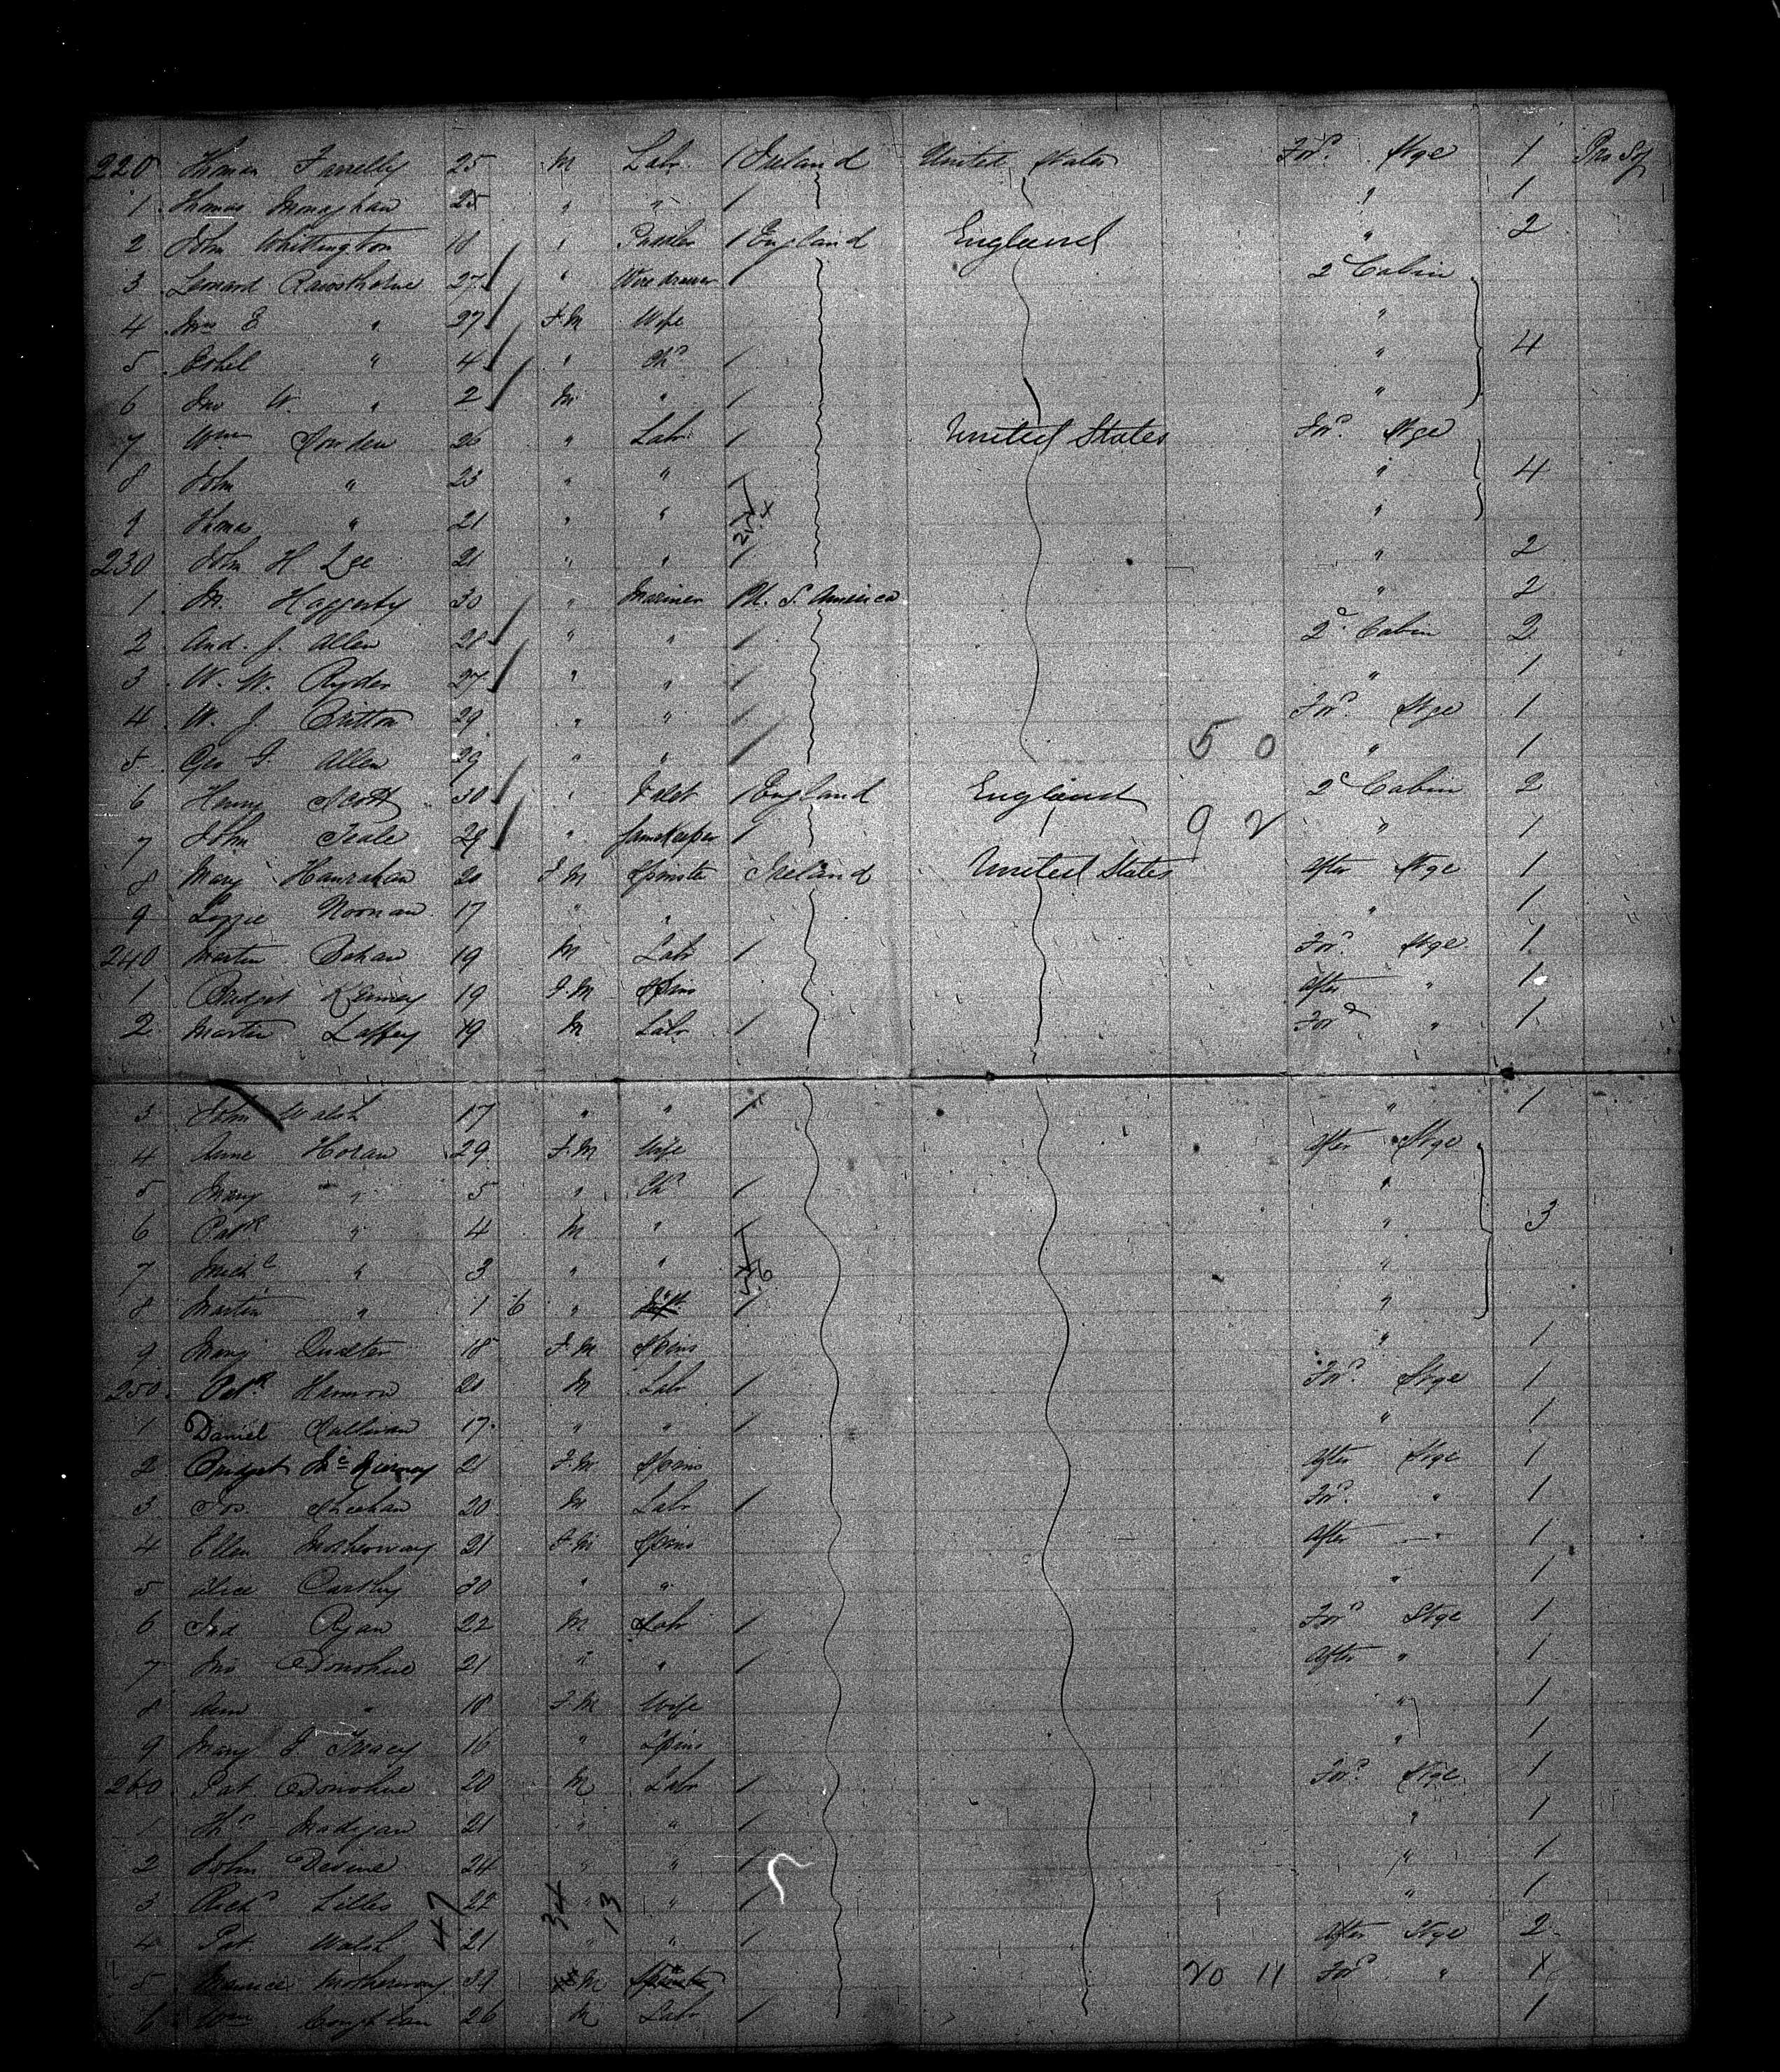 220 Thomas Farrelly 25 M Labr 1 Ireland United States For'd Stge 1 Pro Soj
1 Thomas Monaghan 25 " " 1 " 1
2 John Whittington 18 " 1 England England " 2
3 Leonard Rawsthorne 27 " Wire drawer 1 2d Cabin
4 Mrs E " 27 F.M Wife "
5 Ethel " 4 " Chd 1 " 4
6 Jno W. " 2 M " 1 "
7 Wm Sowden 26 " Labr 1 United States For'd Stge
8 John " 23 " " 1 " 4
9 Thomas " 21 " " "
230 John H Lee 21 " " 1 " 2
1 M. Haggerty 30 " Mariner U. S. America " 2
2 And. J. Allen 28 " " 1 2d Cabin 2
3 W. W. Ryder 27 " " 1 " 1
4 W. J Britton 29 " " 1 For'd Stge 1
5 Geo F. Allen 29 " " 1 5 0 " 1
6 Henry Scott 30 " Valet 1 England England 2d Cabin 2
7 John Teale 29 " Gamekeeper 1 9 2 " 1
8 Mary Hanrahan 20 F M Spinster Ireland United States After Stge 1
9 Lizzie Noonan 17 " " " 1
240 Martin Bohan 19 M Labr 1 For'd Stge 1
1 Bridget 19 F.M Spins After " 1
2 Martin Laffey 19 M Labr 1 For'd " 1
3 John Walsh 17 " " 1 " 1
4 Anne Horan 29 F.M Wife After Stge
5 Mary " 5 " Chd 1 "
6 Patk " 4 M " 1 " 3
7 Michl " 3 " " "
8 Martin " 1 6 " 1 "
9 Mary Qualter 18 F M Spins " 1
250 Patk Hannon 21 M Labr 1 For'd Stge 1
1 Daniel Sullivan 17 " " 1 " 1
2 Bridget 21 F.M Spins After Stge 1
3 Jos. Sheehan 20 M Labr 1 For'd " 1
4 Ellen Motherway 21 F.M Spins After " 1
5 Alice Carthy 30 " " " 1
6 Ryan 22 M Labr 1 For'd Stge 1
7 Jno ODonohue 21 " " 1 After " 1
8 Ann " 18 F.M Wife " 1
9 Mary J. Tracey 16 " Spins " 1
260 Pat. ODonohue 20 M Labr 1 For'd Stge 1
1 Ths Madigan 21 " " 1 " 1
2 John Devine 24 " " 1 " 1
3 Richd Lillis 22 " " 1 " 1
47 34 13
4 Pat. Walsh 21 " " 1 After Stge 2
5 Maurice Motherway 39 M 20 11 For'd " 1
6 Wm Coughlan 26 M Labr 1 1